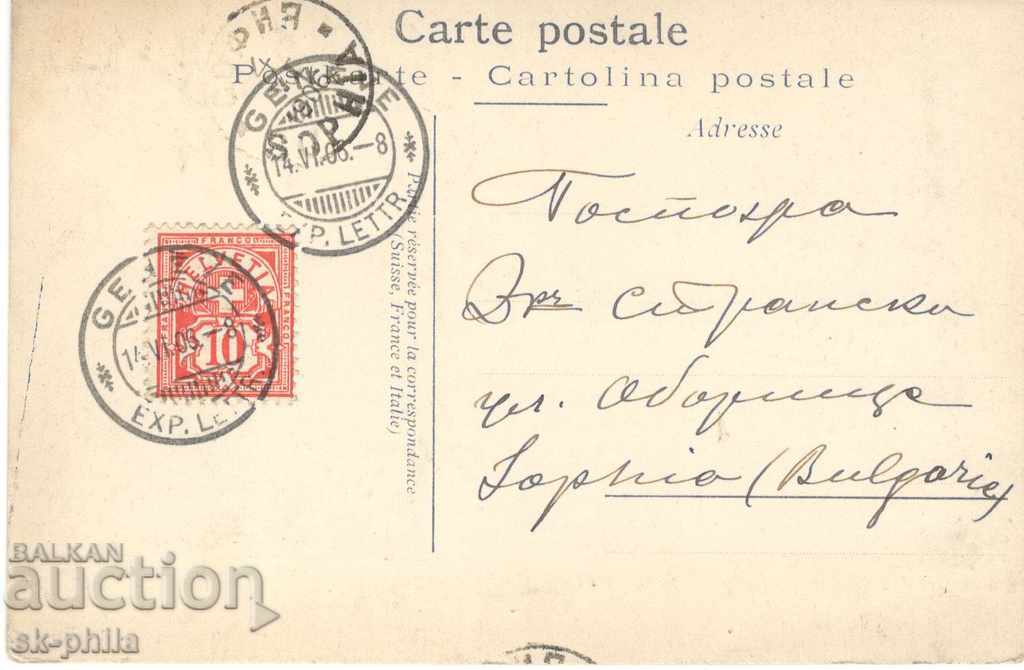 Carte postale
Postkarte - Cartolina postale
Adresse
Partie réservée pour la correspondance
(Suisse, France et Italie)
GENÈVE
14.VI.06.-8
EXP. LETTR.
FRANCO
HELVETIA
FRANCO
FRANCO
10
GENÈVE
14.VI.06.-8
EXP. LETTR.
Госпожа
Д-ръ Странски
ул. Оборище
Sophia (Bulgarie)
BALKAN
auction
sk-phila